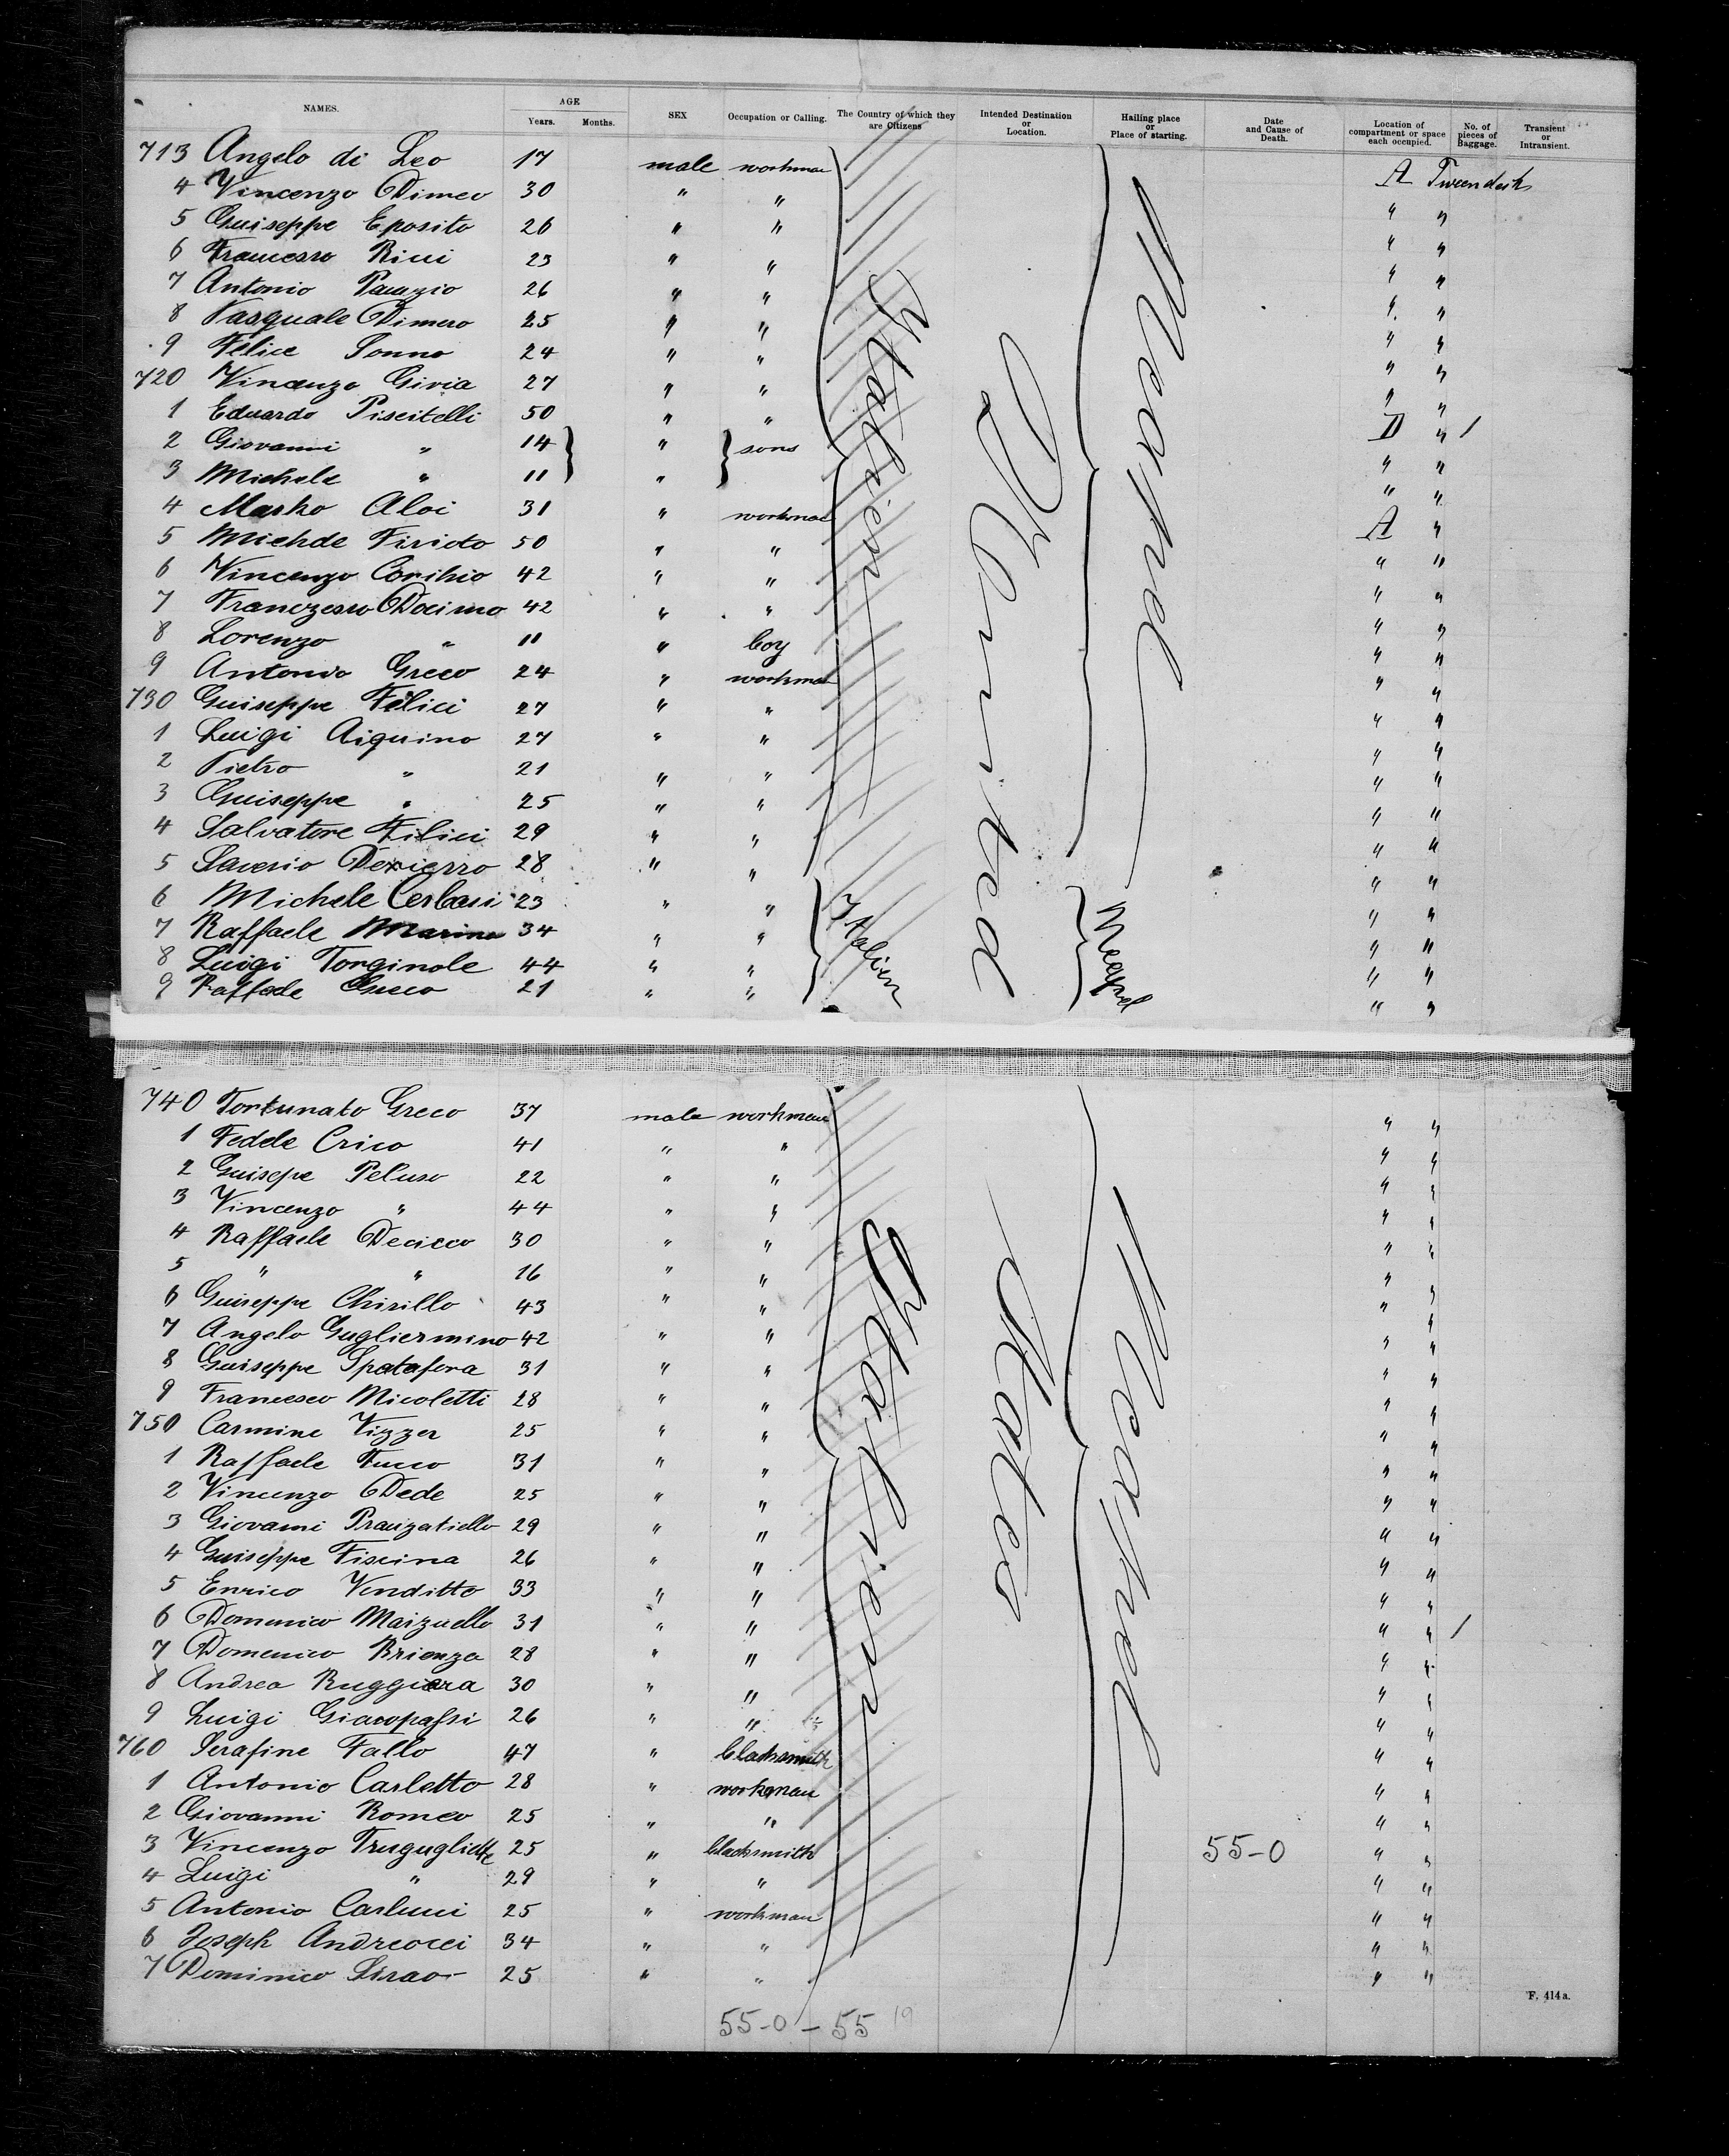 NAMES. AGE Years. Months. SEX Occupation or Calling. The Country of which they are Citizens Intended Destination or Location. Hailing place or Place of starting. Date and Cause of Death. Location of compartment or space each occupied. No. of pieces of Baggage. Transient or Intransient.
713 Angelo di Leo 17 male workman A Tweendeck
4 Vincenzo Dimeo 30 " " " "
5 Guiseppe Eposito 26 " " " "
6 Francesco Ricci 23 " " " "
7 Antonio 26 " " " "
8 Pasquale Dimeo 25 " " " "
9 Felice Sonno 24 " " " "
720 Vincenzo Givia 27 " " " "
1 Eduardo Piscitelli 50 " " D " /
2 Giovanni " 14 " sons " "
3 Michele " 11 " " "
4 Marko Aloi 31 " workman A "
5 Michele 50 " " " "
6 Vincenzo 42 " " " "
7 Docimo 42 " " " "
8 Lorenzo " 11 " boy " "
9 Antonio Greco 24 " workman " "
730 Guiseppe Felici 27 " " " "
1 Luigi Aiquino 27 " " " "
2 Pietro " 21 " " " "
3 Guiseppe " 25 " " " "
4 Salvatore Filici 29 " " " "
5 Saverio 28 " " " "
6 Michele Cerbasi 23 " " " "
7 Raffaele Marino 34 " " " "
8 Luigi Torginole 44 " " " "
9 Raffaele 21 " " " "
Italien
Italien
United
Neapel
Neapel
740 Fortunato Greco 37 male workman " "
1 Fedele Crico 41 " " " "
2 Guisepe Peluso 22 " " " "
3 Vincenzo " 44 " " " "
4 Raffaele Decicco 30 " " " "
5 " " 16 " " " "
6 Guiseppe Chirillo 43 " " " "
7 Angelo Gugliermino 42 " " " "
8 Guiseppe Spatafora 31 " " " "
9 Francesco Nicoletti 28 " " " "
750 Carmine Vizzer 25 " " " "
1 Raffaele Fucco 31 " " " "
2 Vincenzo Dede 25 " " " "
3 Giovanni Pranzatiello 29 " " " "
4 Guiseppe Fiscina 26 " " " "
5 Enrico Venditto 33 " " " "
6 Domenico Maizuello 31 " " " " /
7 Domenico Brienza 28 " " " "
8 Andrea Ruggiera 30 " " " "
9 Luigi Giacopassi 26 " " " "
760 Serafine Fallo 47 " blacksmith " "
1 Antonio Carletto 28 " workman " "
2 Giovanni Romeo 25 " " " "
3 Vincenzo 25 " blacksmith 55-0 " "
4 Luigi " 29 " " " "
5 Antonio Carlucci 25 " workman " "
6 Joseph Andreocci 34 " " " "
7 Dominico Sirao 25 " " " "
Italien
States
Neapel
F. 414a.
55-0-55 19